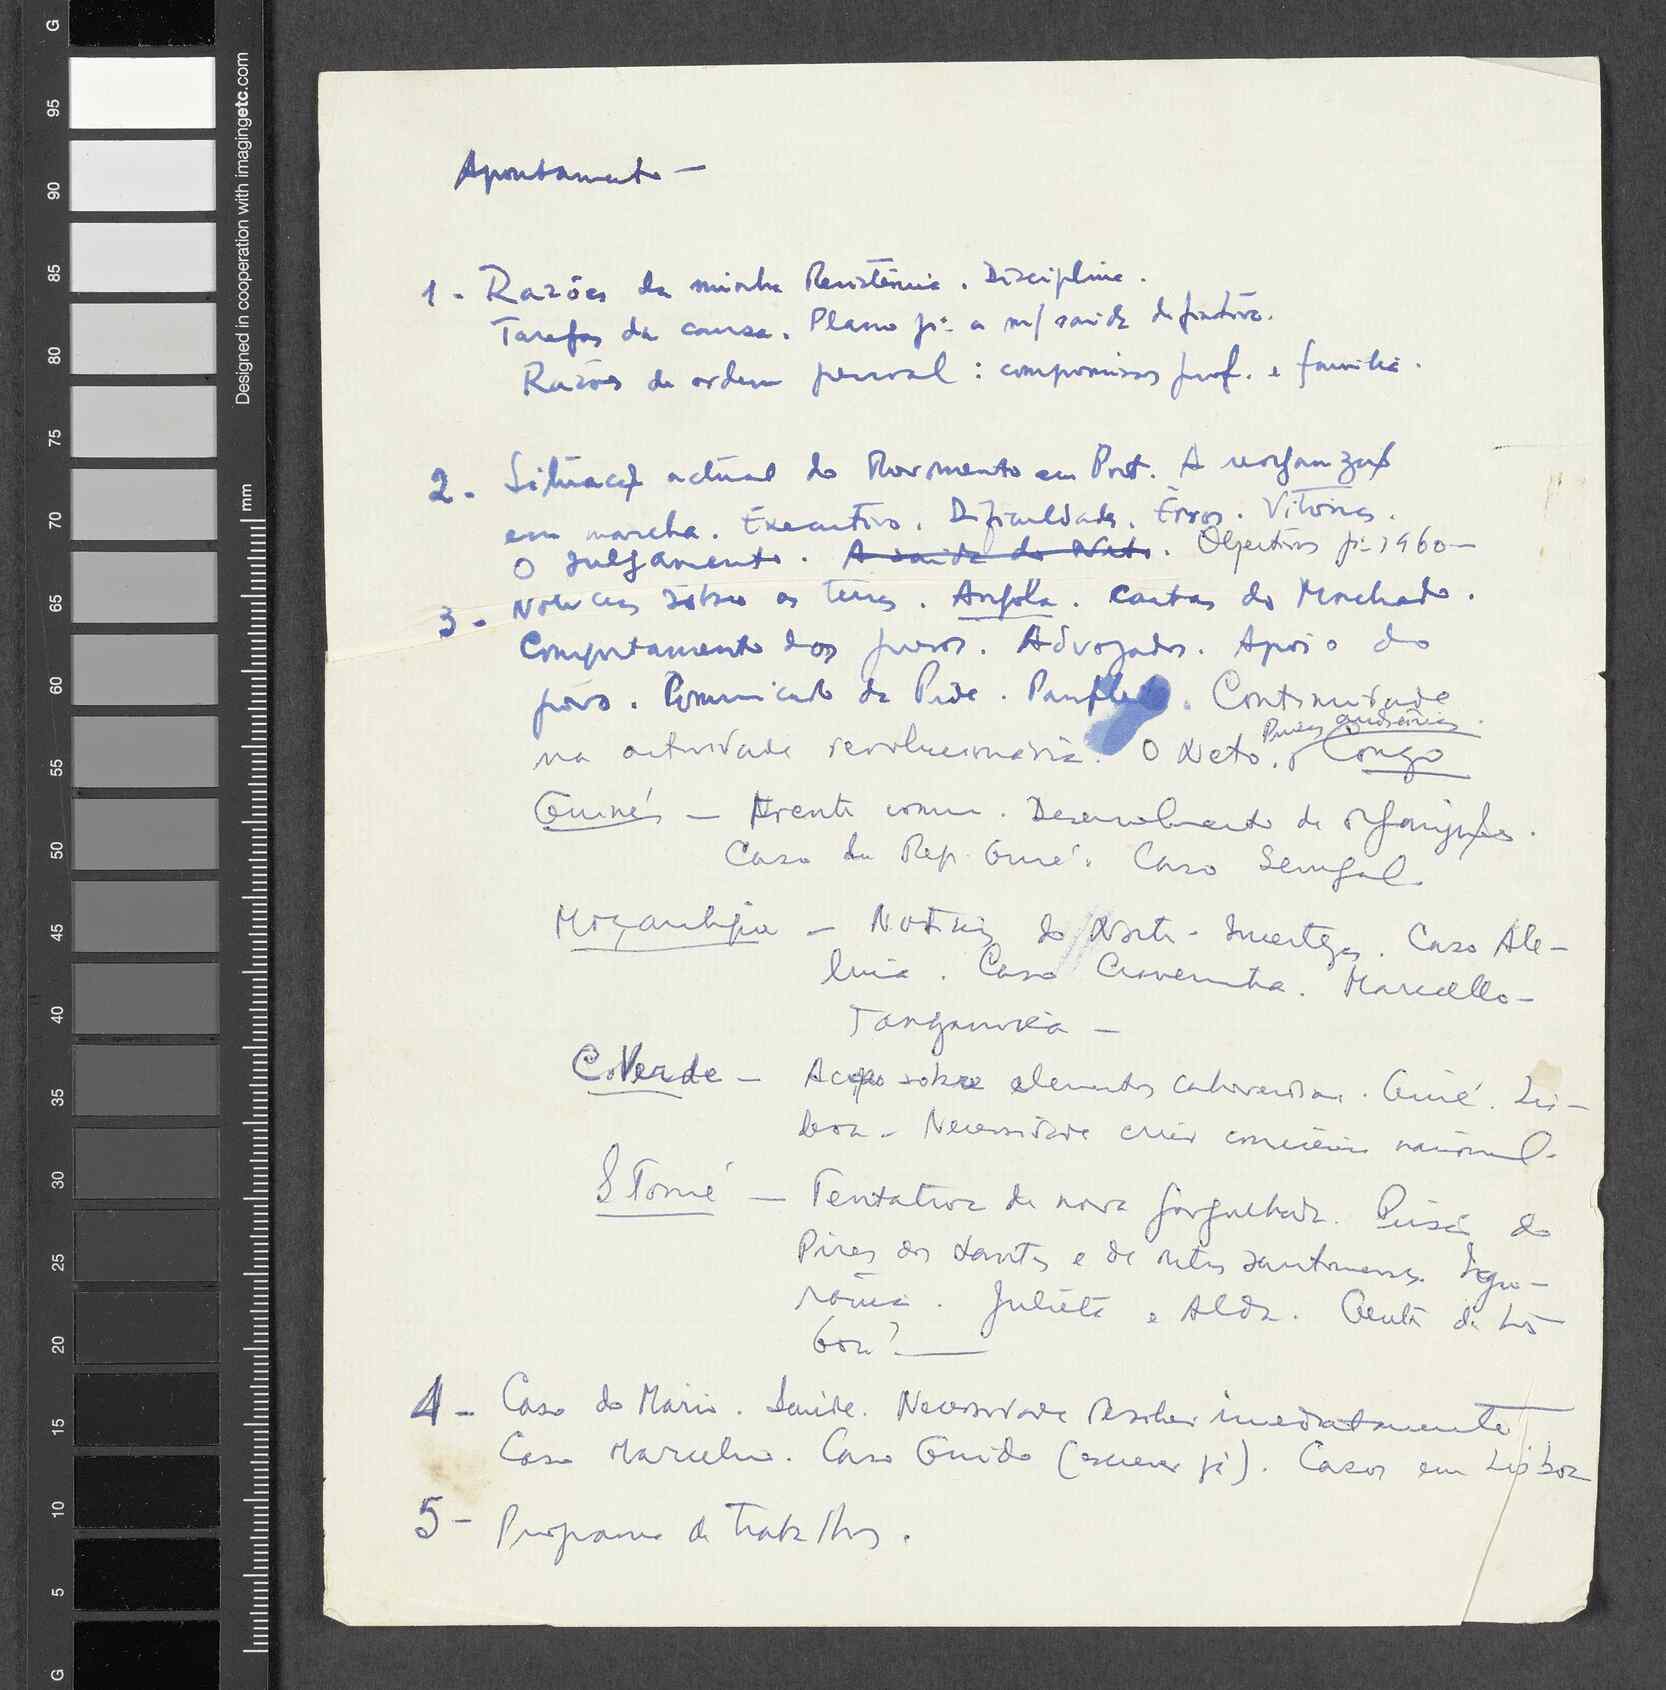 Apontamento —
1 - Razões da minha Resistência. Disciplina.
Tarefas da causa. Plano p.ª a m/ saída definitiva.
Razões de ordem pessoal : compromissos prof. e família.
2 - Situação actual do Movimento em Port. A reorganização
em marcha. Executivo. Dificuldades. Êrros. Vitórias.
O Julgamento. A saída do Neto. Objectivos p.ª 1960 —
3 - Notícias sôbre as terras. Angola. Cartas do Machado.
Comportamento dos presos. Advogados. Apoio do
povo. Comunicado da Pide. Panfleto. Continuidade
na actividade revolucionária. O Neto. o Congo
Guiné — Frente comum. Desenvolvimento da organização.
Caso da Rep. Guiné. Caso Senegal
Moçambique — Notícias do Norte - Incertezas. Caso Ale-
luia. Caso Craveirinha. Marcello -
Tanganika —
C. Verde — Acção sobre elementos caboverdian. Guiné. Lis-
boa - Necessidade criar consciência nacional.
S Tomé — Tentativa de nova gorgulhada. Prisão do
Pires dos Santos e de santomenses.
Julieta e Alda. Gente de Lis
boa? —
4 - Caso do Mário. Saúde. Necessidade resolver imediatamente
Caso Marcelino. Caso Guido (escrever já). Casos em Lisboa
5 - Programa de Trabalhos.
G
95
90
85
80
75
70
65
60
55
50
45
40
35
30
25
20
15
10
5
G
mm
Designed in cooperation with imagingetc.com